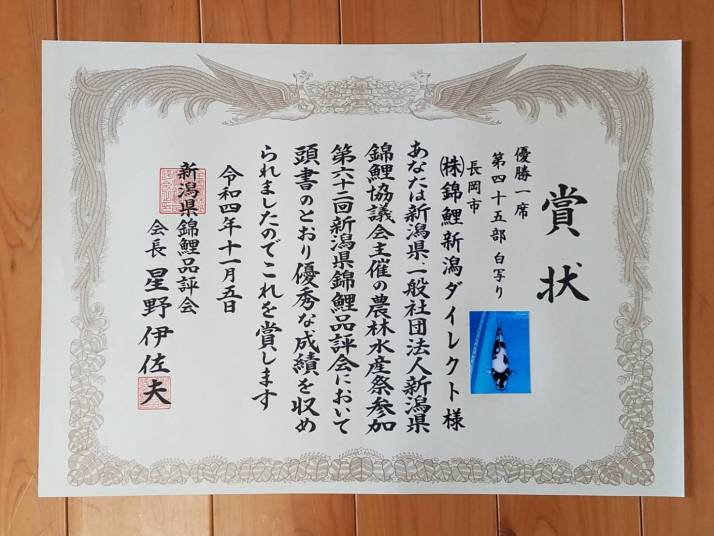 賞状
優勝一席
第四十五部 白写り
長岡市
㈱錦鯉新潟ダイレクト様
あなたは新潟県一般社団法人新潟県
錦鯉協議会主催の農林水産祭参加
第六十二回新潟県錦鯉品評会において
頭書のとおり優秀な成績を収め
られましたのでこれを賞します
令和四年十一月五日
新潟県錦鯉品評会
会長 星野伊佐夫